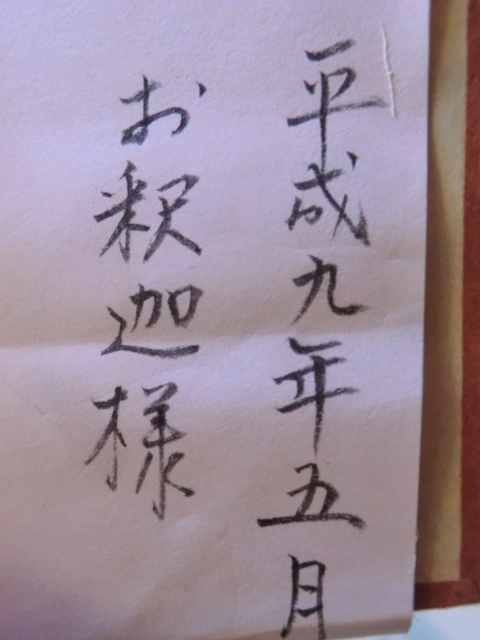 平成九年五月
お釈迦様